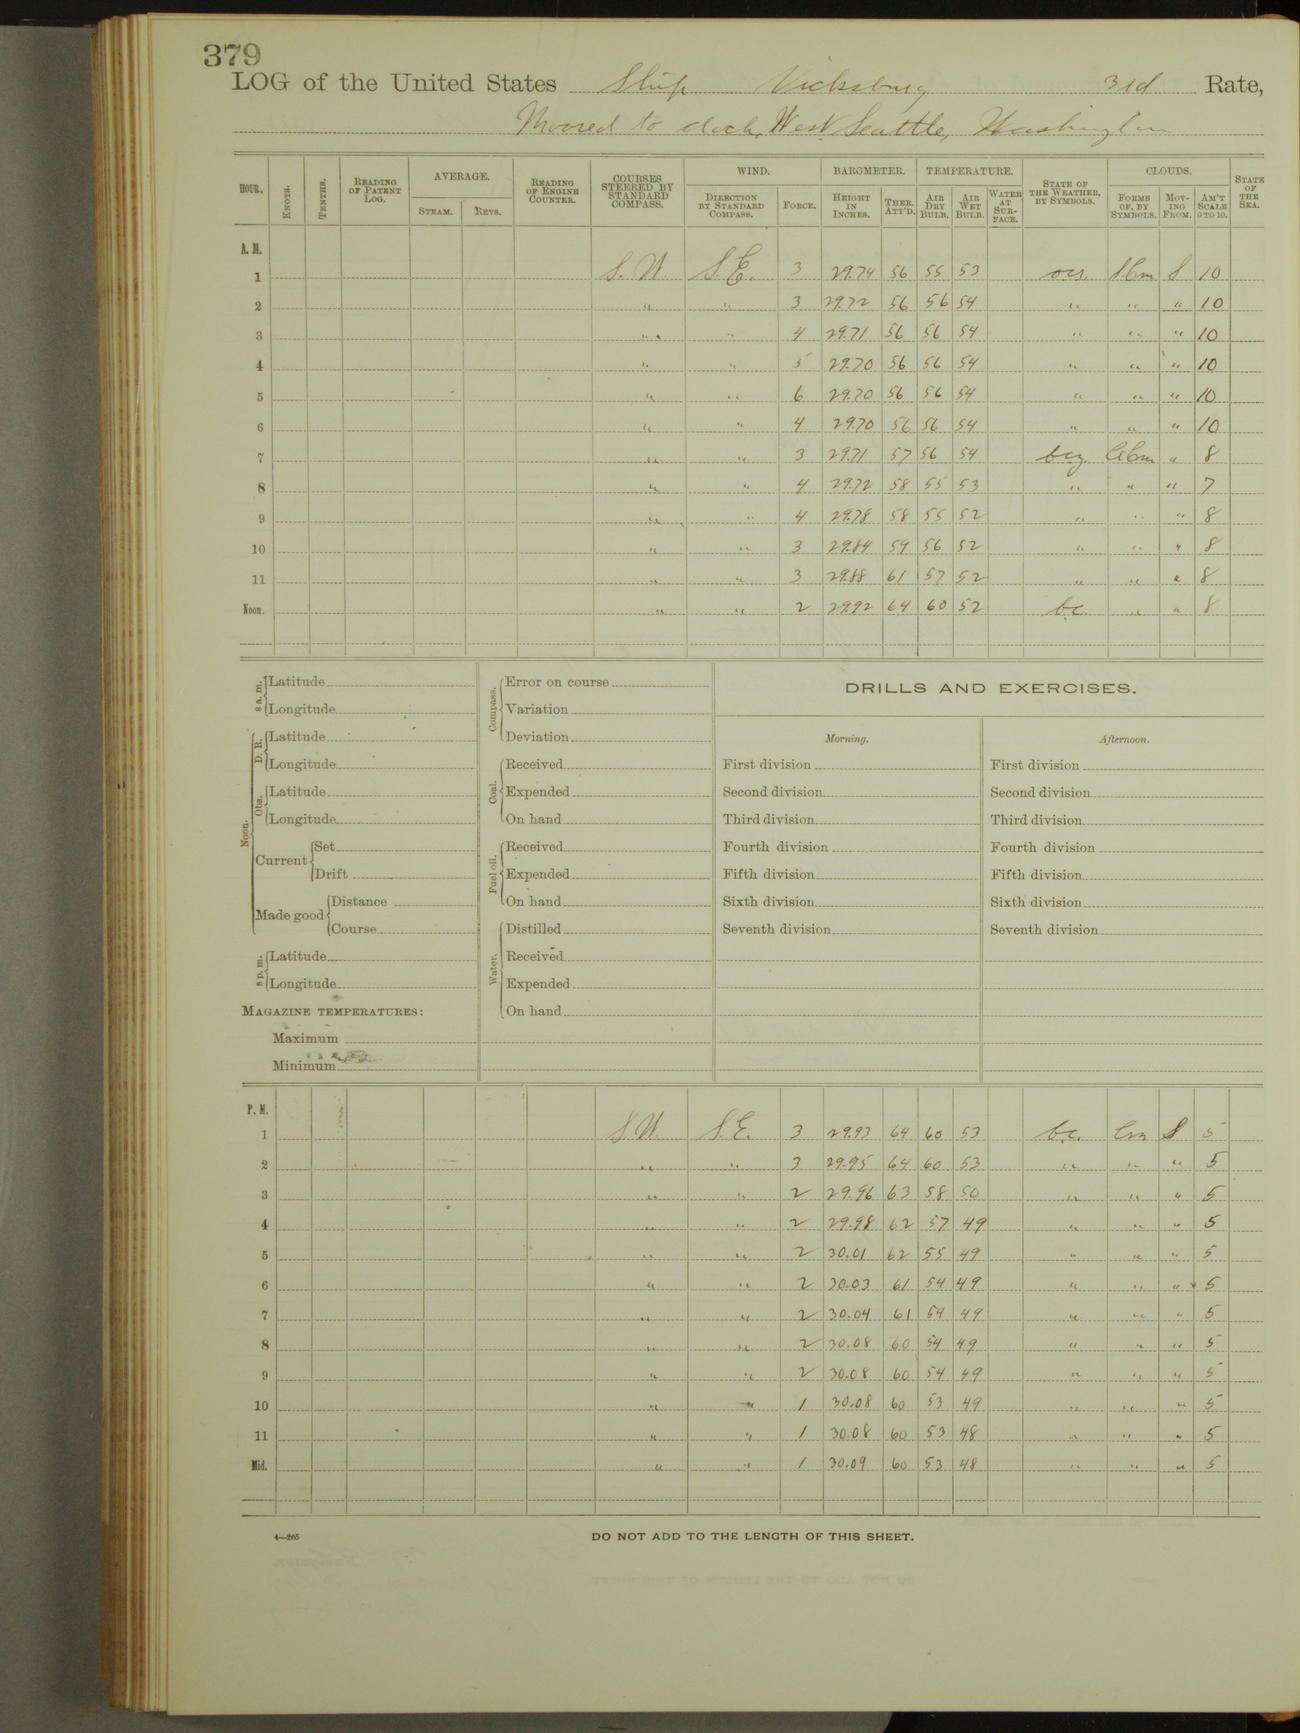 379
LOG of the United States Ship Vicksburg 3rd Rate,
Moored to dock, West Seattle, Washington
HOUR. KNOTS. TENTHS. READING OF PATENT LOG. AVERAGE. STEAM. REVS. READING OF ENGINE COUNTER. COURSES STEERED BY STANDARD COMPASS. WIND. DIRECTION BY STANDARD COMPASS. FORCE. BAROMETER. HEIGHT IN INCHES. THER. ATT'D. TEMPERATURE. AIR DRY BULB. AIR WET BULB. WATER AT SURFACE. STATE OF THE WEATHER, BY SYMBOLS. CLOUDS. FORMS OF, BY SYMBOLS. MOVING FROM. AM'T SCALE 0 TO 10. STATE OF THE SEA.
A. M.
1 S.W. S.E. 3 29.74 56 55 53 S 10
2 " " 3 29.72 56 56 54 " " " 10
3 " " 4 29.71 56 56 54 " " " 10
4 " " 5 29.70 56 56 54 " " " 10
5 " " 6 29.70 56 56 54 " " " 10
6 " " 4 29.70 56 56 54 " " " 10
7 " " 3 29.71 57 56 54 " 8
8 " " 4 29.72 58 55 53 " " " 7
9 " " 4 29.78 58 55 52 " " " 8
10 " " 3 29.84 59 56 52 " " " 8
11 " " 3 29.88 61 57 52 " " " 8
Noon. " " 2 29.92 64 60 52 b.c. " " 8
8 a. m. Latitude
Longitude
Noon. D. R. Latitude
Longitude
Obs. Latitude
Longitude
Current Set
Drift
Made good Distance
Course
8 p. m. Latitude
Longitude
MAGAZINE TEMPERATURES:
Maximum
Minimum
Compass. Error on course
Variation
Deviation
Coal. Received
Expended
On hand
Fuel oil. Received
Expended
On hand
Water. Distilled
Received
Expended
On hand
DRILLS AND EXERCISES.
Morning.
First division
Second division
Third division
Fourth division
Fifth division
Sixth division
Seventh division
Afternoon.
First division
Second division
Third division
Fourth division
Fifth division
Sixth division
Seventh division
P. M.
1 S.W. S.E. 3 29.93 64 60 53 b.c. Cu S 5
2 " " 3 29.95 64 60 53 " " " 5
3 " " 2 29.96 63 58 50 " " " 5
4 " " 2 29.98 62 57 49 " " " 5
5 " " 2 30.01 62 55 49 " " " 5
6 " " 2 30.03 61 54 49 " " " 5
7 " " 2 30.04 61 54 49 " " " 5
8 " " 2 30.08 60 54 49 " " " 5
9 " " 2 30.08 60 54 49 " " " 5
10 " " 1 30.08 60 53 49 " " " 5
11 " " 1 30.08 60 53 48 " " " 5
Mid. " " 1 30.09 60 53 48 " " " 5
4—265
DO NOT ADD TO THE LENGTH OF THIS SHEET.